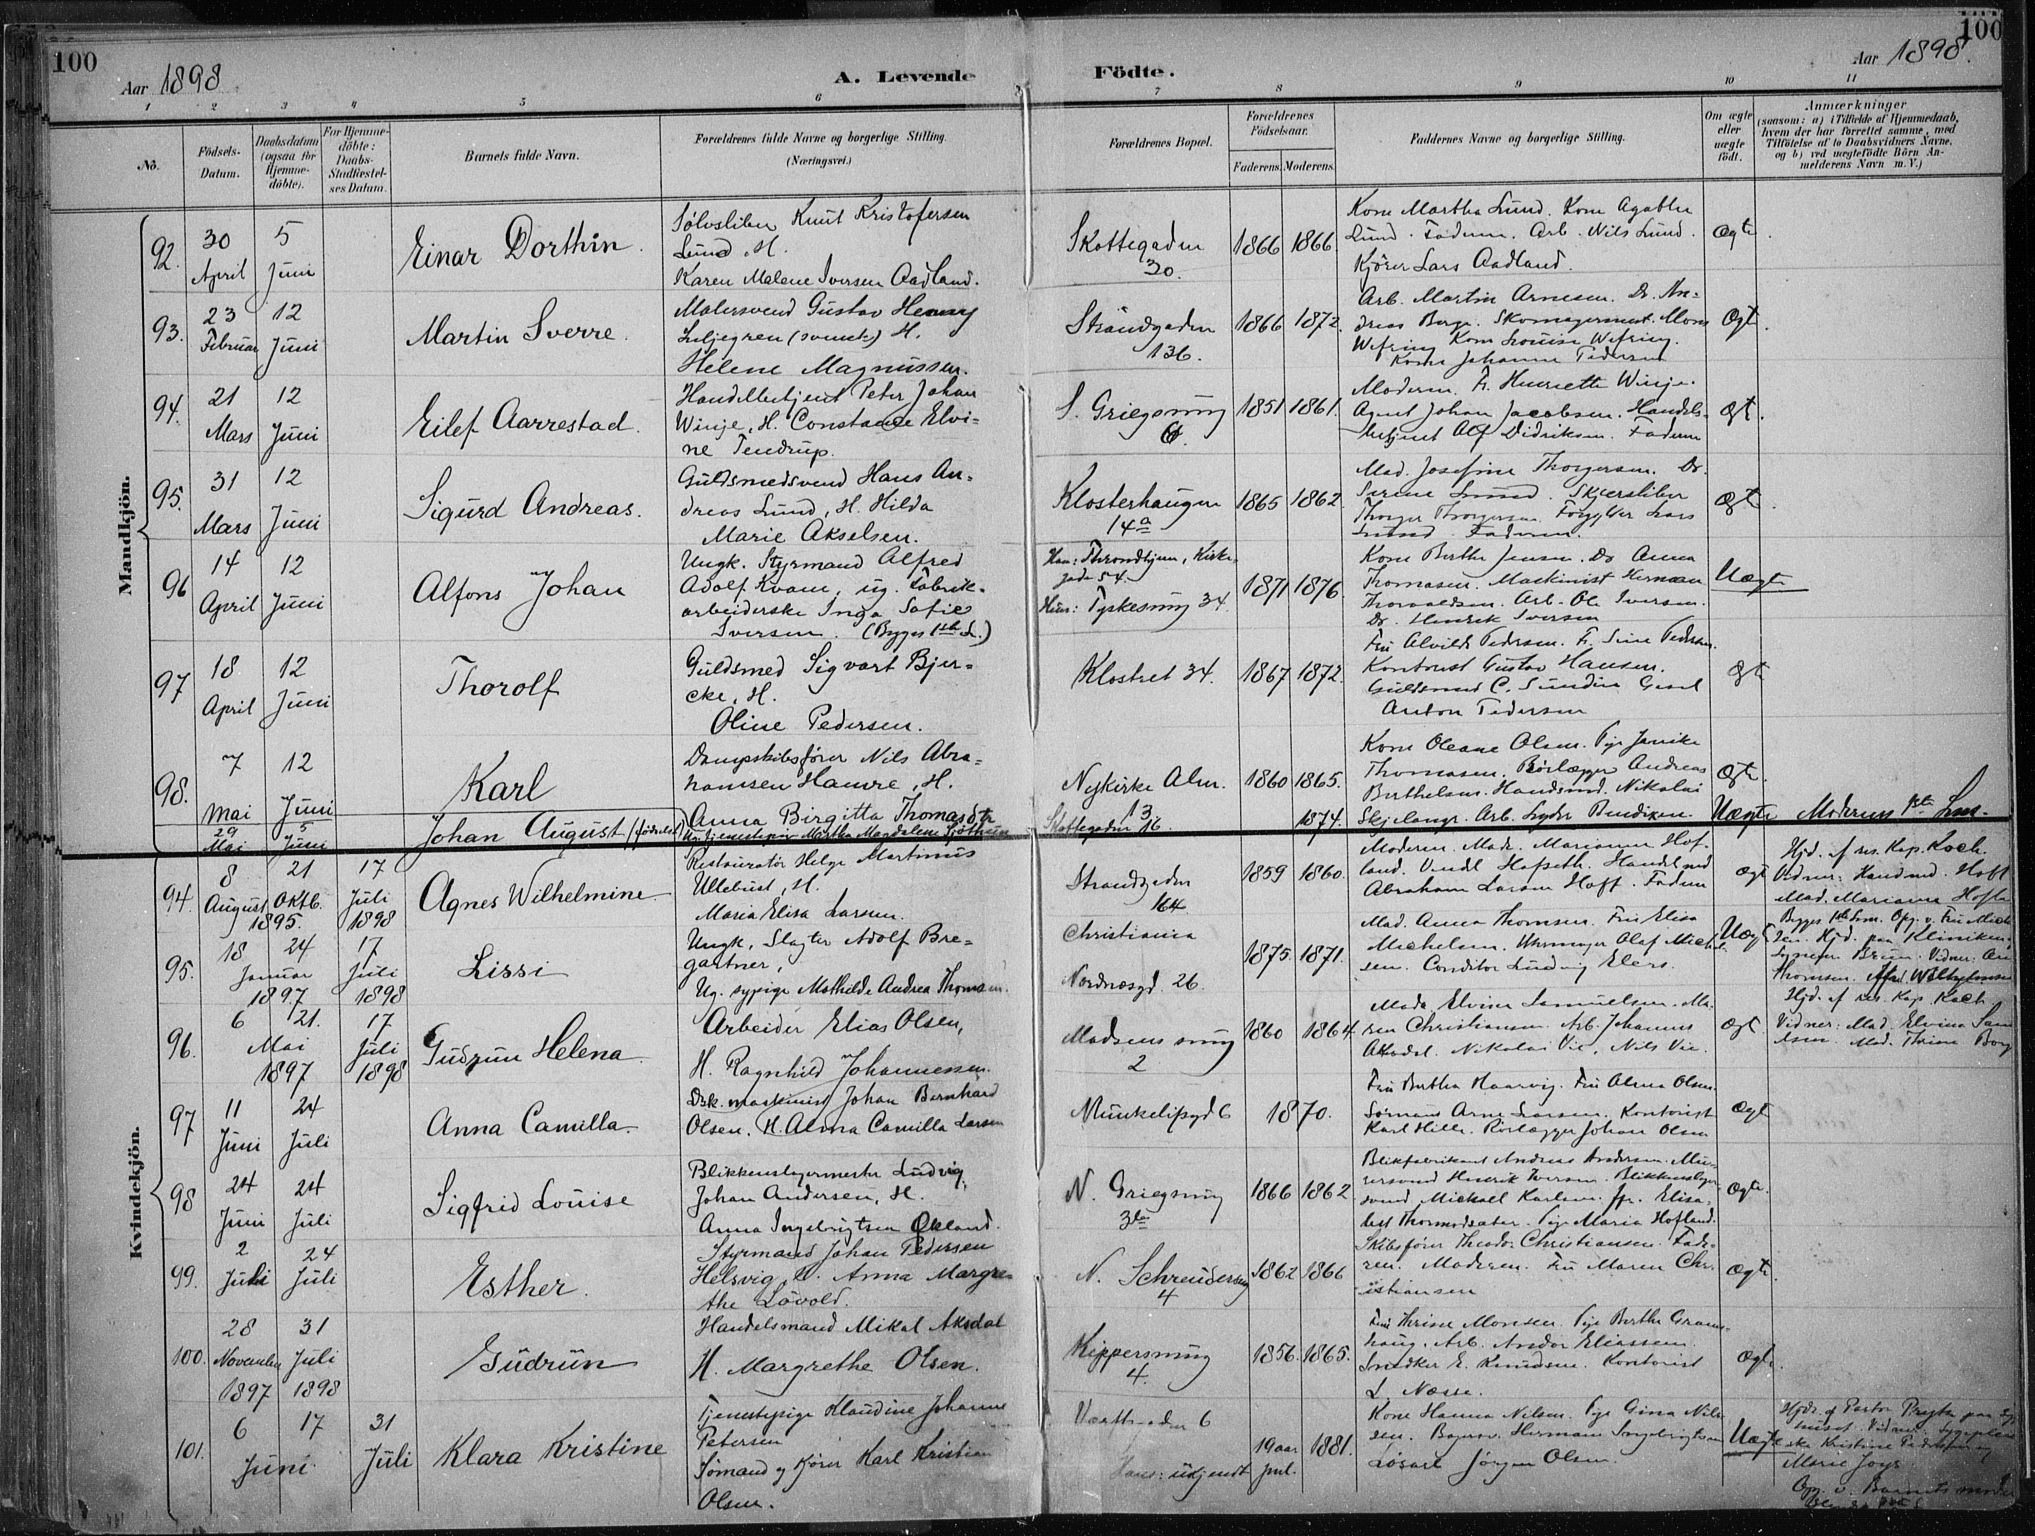 100
Aar 1898
A. Levende Födte.
Aar 1898.
100
1 2 3 4 5 6 7 8 9 10 11
No.
Födsels-Datum.
Daabsdatum (ogsaa for Hjemme-döbte).
For Hjemme-döbte: Daabs-Stadfæstel-ses Datum.
Barnets fulde Navn.
Forældrenes fulde Navne og borgerlige Stilling. (Næringsvei.)
Forældrenes Bopæl.
Forældrenes Födselsaar.
Faderens. Moderens.
Faddernes Navne og borgerlige Stilling.
Om ægte eller uægte födt.
Anmærkninger
(saasom: a) i Tilfælde af Hjemmedaab,
hvem der har forrettet samme, med
Tilföielse af to Daabsvidners Navne,
og b) ved uægtefödte Börn An-
melderens Navn m. V.)
Mandkjön.
92. 30 April 5 Juni
Einar Dorthin.
Sølvsliber Knut Kristofersen
Lund, H.
Karen Malene Iversen Aadland.
Skottegaden 30.
1866 1866
Kone Martha Lund. Kone Agathe
Lund. Faderen. Arb. Nils Lund.
Kjører Lars Aadland.
Ægte.
93. 23 Februar 12 Juni
Martin Sverre.
Malersvend Gustav Henry
Liljegren (svensk) H.
Helene Magnussen.
Strandgaden 136.
1866 1872.
Arb. Martin Arnesen. Dr. An-
dreas Berge. Skomagermest. Mons
Wefring Kone Louise Wefring.
Kone Johanne Pedersen
Ægte.
94. 21 Mars 12 Juni
Eilef Aarrestad.
Handelbetjent Peter Johan
Winje, H. Constance Elvi-
ne Tendrup.
S. Griegsmug 6.
1851 1861.
Moderen. Fr. Henriette Winje.
Agent Johan Jacobsen. Handels-
betjent Alf Didriksen. Faderen
Ægt.
95. 31 Mars 12 Juni
Sigurd Andreas.
Guldsmedsvend Hans An-
dreas Lund, H. Hilda
Marie Akselsen.
Klosterhaugen 14a
1865 1862.
Mad. Josefine Thorgersen. Dr.
Serine Lund. Skjærsliber
Thorger Thorgersen Forgylder Lars
Lund Faderen.
Ægte.
96 14 April 12 Juni
Alfons Johan
Ungk. Styrmand Alfred
Adolf Kvam, ug. Fabrik-
arbeiderske Inga Sofie
Iversen. (Begges 1ste L.)
Han: Throndhjem, Kirke-
gade 54.
Hun: Tyskesmug 34.
1871 1876.
Kone Berthe Jensen. Do Anna
Thomasen. Maskinist Herman
Thorvaldsen. Arb. Ole Iversen.
Dr. Henrik Iversen
Uægte
97 18 April 12 Juni
Thorolf
Guldsmed Sigvart Bjer-
cke, H.
Oline Pedersen.
Klostret 34.
1867 1872.
Fru Alvilde Pedersen. Fr. Sine Pedersen.
Kontorist Gustav Hansen.
Guldsmed C. Sundin Gesel
Anton Pedersen
Ægte
98. 7 Mai 12 Juni
Karl
Dampskibsfører Nils Abra-
hamsen Hamre, H.
Anna Birgitta Thomasdtr
Nykirke Alm. 13
1860 1865.
Kone Oleane Olsen. Pige Janike
Thomasen. Rørlægger Andreas
Berthelsen. Handelsmd. Nikolai
Skjelanger. Arb. Lyder Bendixen
Ægte.
29 Mai 5 Juni
Johan August
Ug. tjenestepige Martha Magdalene
Skottegaden 16.
1874.
Uægte Moderens 1ste Lm.
Kvindekjön.
94. 8 August 21 Oktb. 1895. 17 Juli 1898
Agnes Wilhelmine.
Restauratør Helge Martinus
Ullebust, H.
Maria Elisa Larsen.
Strandgaden 164
1859 1860.
Moderen. Mad. Marianne Hof-
land. Vendl Hafseth. Handelsmd
Abraham Larsen Hoft. Faderen
Ægte
Hjd. af res. Kap. Koch.
Vidner: Handmd. Hoft
Mad. Marianne Hofla
95. 18 Januar 24 1897 17 Juli 1898
Lissi
Ungk. Slagter Adolf Bre-
gartner,
Ug. sypige Mathilde Andrea Thomsen.
Christiania
Nordnæsgd. 26.
1875. 1871.
Mad. Anna Thomsen. Fru Elisa
Michelsen. Uhrmager Olaf Michel-
sen. Conditor Ludvig Elers.
Uægt
Begges 1ste Lm. Opg. v. Fru Miche
sen. Hjd. paa Kliniken,
96. 6 Mai 21. 1897 17 Juli 1898
Gudrun Helena.
Arbeider Elias Olsen,
H. Ragnhild Johannessen.
Madsens smug 2
1860 1864.
Mad. Elvine Samuelsen. Ma-
ren Christiansen. Arb. Johannes
Nikolai Vie, Nils Vie.
Ægte
Hjd. af res. Kap. Koch
Vidner: Mad. Elvina Sam
97 11 Juni 24 Juli
Anna Camilla.
Dsk. maskinist Johan Bernhard
Olsen. H. Alma Camilla Larsen
Munkelipgd 6
1870.
Fru Bertha Haarvig. Fru Alma Olsen.
Sømand Arne Larsen. Kontorist
Karl Hille. Rørlægger Johan Olsen
Ægte
98 24 Juni 24 Juli
Sigfrid Louise
Blikkenslagermester Ludvig
Johan Andersen, H.
Anna Ingebrigtsen Økland.
N. Griegsmug
1866 1862
Blikfabrikant Andreas Andersen. Mu-
rersvend Henrik Iversen. Blikkenslager-
svend Mickael Karlsen. Jfr. Elisa-
bet Thormodsæter. Pige Maria Hofland.
Ægte.
99. 2 Juli 24 Juli
Esther.
Styrmand Johan Pedersen
Helsvig, H. Anna Margre-
the Løvold.
N. Schreudersmug 4
1862 1866
Skibsfører Theodor Christiansen. Fade-
ren. Moderen. Fru Maren Chr-
istiansen
Ægte.
100. 28 November 1897 31 Juli 1898
Gudrun
Handelsmand Mikal Aksdal
H. Margrethe Olsen.
Kippersmug 4.
1856. 1865.
Fru Thrine Monsen. Pige Berthe Grams-
haug. Arb. Andor Eliassen.
Snedker E. Knudsen. Kontorist
L. Næsse.
Ægte.
101. 6 Juni 17 31 Juli
Klara Kristine
Tjenestepige Klaudine Johanne
Petersen
Sømand og Kjører Karl Kristian
Olsen.
6
Hans: ukjendt
19 aar 1881.
Kone Hanna Nilsen. Pige Gina Nils-
sen. Bogror. Herman Ingebrigtsen
Løsarb Jørgen Olsen.
Uægte
Marie Joys.
Opg. v. Barnets moder